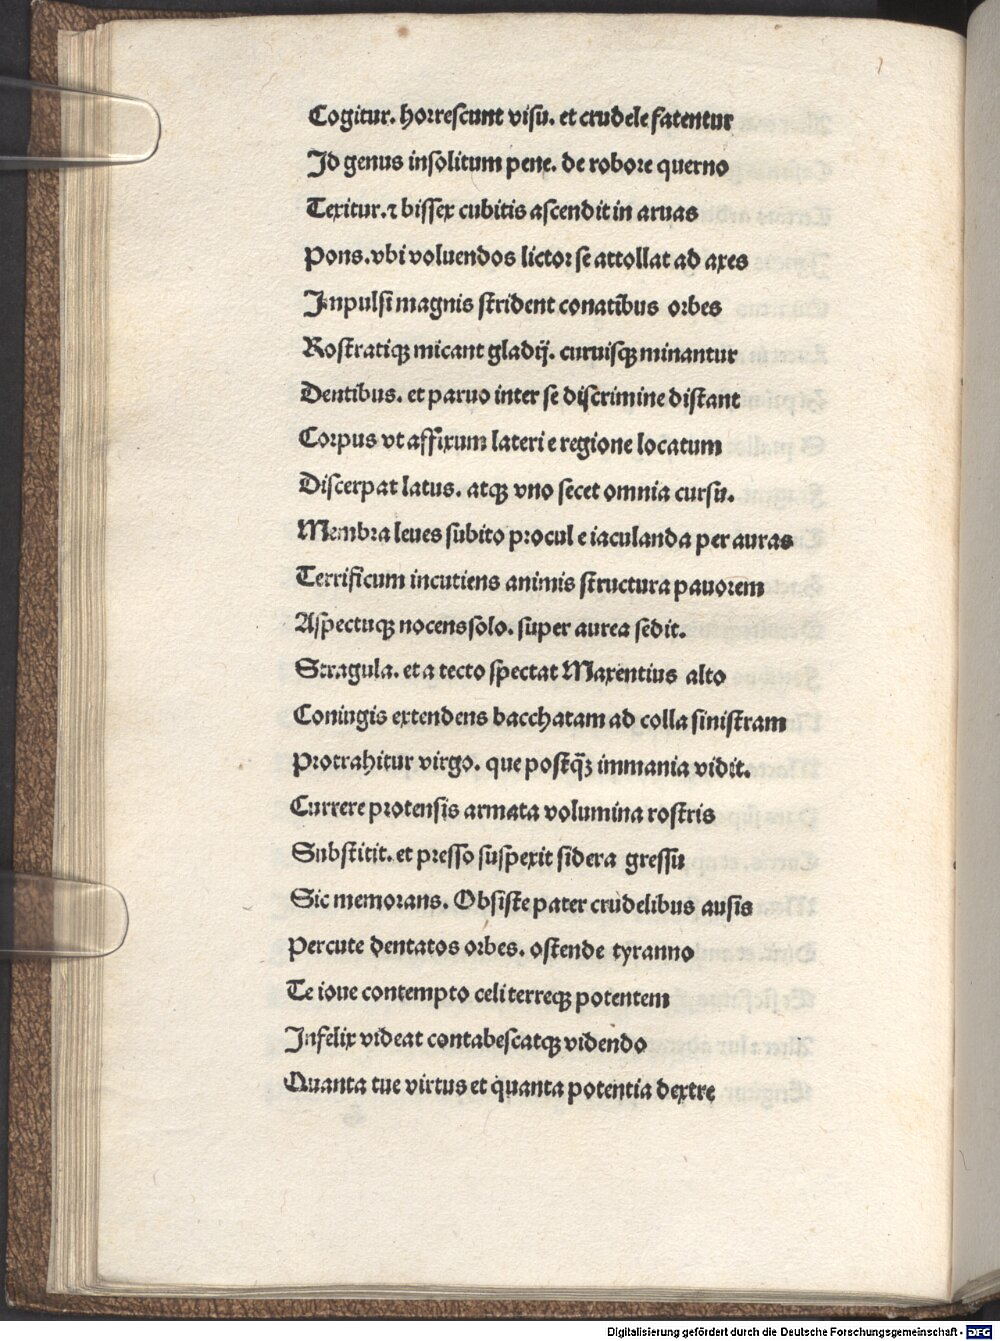 Cogitur. horrescunt visu. et crudele fatentur
Id genus insolitum pene. de robore querno
Texitur. ⁊ bissex cubitis ascendit in aruas
Pons. vbi voluendos lictor se attollat ad axes
Impulsi magnis strident conatibus orbes
Rostratiqꝫ micant gladij. curuisqꝫ minantur
Dentibus. et paruo inter se discrimine distant
Corpus vt affixum lateri e regione locatum
Discerpat latus. atqꝫ vno secet omnia cursu.
Membra leues subito procul eiaculanda per auras
Terrificum incutiens animis structura pauorem
Aspectuqꝫ nocens solo. super aurea sedit.
Stragula. et a tecto spectat Maxentius alto
Coniugis extendens bacchatam ad colla sinistram
Protrahitur virgo. que postq̄ꝫ immania vidit.
Currere protensis armata volumina rostris
Substitit. et presso suspexit sidera gressu
Sic memorans. Obsiste pater crudelibus ausis
Percute dentatos orbes. ostende tyranno
Te ioue contempto celi terreqꝫ potentem
Infelix videat contabescatqꝫ videndo
Quanta tue virtus et quanta potentia dextre
Digitalisierung gefördert durch die Deutsche Forschungsgemeinschaft - DFG